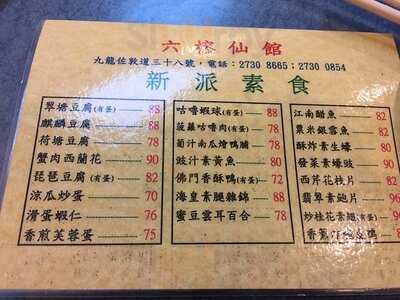 六榕仙館
九龍佐敦道三十八號，電話：2730 8665；2730 0854
新派素食
翠塘豆腐(有蛋) 88
麒麟豆腐 88
荷塘豆腐 78
蟹肉西蘭花 90
琵琶豆腐(有蛋) 82
涼瓜炒蛋 70
滑蛋蝦仁 76
香煎芙蓉蛋 75
咕嚕蝦球(有蛋) 88
菠蘿咕嚕肉(有蛋) 78
蜀汁南瓜燴鴨脯 78
豉汁素黃魚 80
佛門香酥鴨(有蛋) 72
海皇素腿雜錦 88
蜜豆雲耳百合 78
江南醋魚 82
粟米銀雪魚 82
酥炸素生蠔 80
發菜素蠔豉 90
西芹花枝片 82
翡翠素鮑片 96
炒桂花素翅(有蛋)